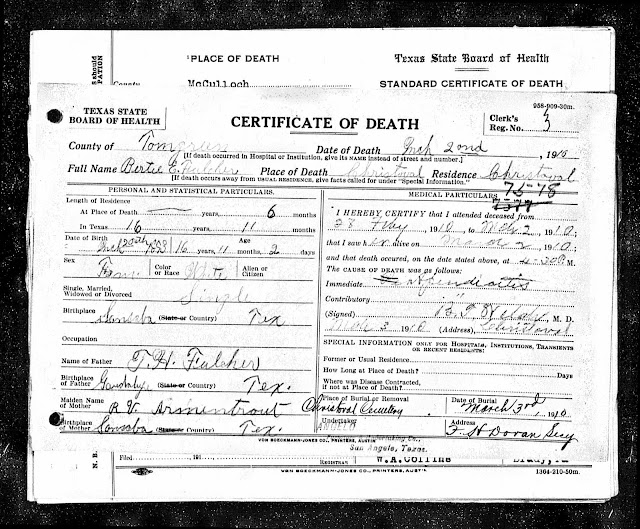 should
PATION
PLACE OF DEATH
Texas State Board of Health
County McCulloch
STANDARD CERTIFICATE OF DEATH
958-909-30m.
TEXAS STATE
BOARD OF HEALTH
CERTIFICATE OF DEATH
Clerk's
Reg. No. 3
County of Tomgreen Date of Death Mch 2nd 1910
[If death occurred in Hospital or Institution, give its NAME instead of street and number.]
Full Name Bertie E. Fulcher Place of Death Christoval Residence Christoval
[If death occurs away from USUAL RESIDENCE, give facts called for under "Special Information."]
PERSONAL AND STATISTICAL PARTICULARS.
Length of Residence
At Place of Death — years, 6 months
In Texas 16 years, 11 months
Date of Birth Age
1893 16 years, 11 months, 2 days
Sex Color or Race White Alien or Citizen
Single, Married,
Widowed or Divorced Single
Birthplace
Sansaba (State or Country) Tex
Occupation
Name of Father T. H. Fulcher
Birthplace
of Father (State or Country) Tex.
Maiden Name
of Mother R.V. Armentrout
Birthplace
of Mother Sansaba (State or Country) Tex
MEDICAL PARTICULARS
75-78
I HEREBY CERTIFY that I attended deceased from
28 1910 to Mch 2 1910;
that I saw her alive on Mar 2 1910;
and that death occurred, on the date stated above, at 4-30 M.
THE CAUSE OF DEATH was as follows:
Immediate Apendicitis
Contributory "
(Signed) M. D.
Mch 3 1910 (Address), Christoval
SPECIAL INFORMATION ONLY FOR HOSPITALS, INSTITUTIONS, TRANSIENTS
OR RECENT RESIDENTS:
Former or Usual Residence
How Long at Place of Death? Days
Where was Disease Contracted,
if not at Place of Death?
Place of Burial or Removal Date of Burial
Christoval Cemetery March 3rd, 1910
Undertaker Address
F H Doran Secy
San Angelo, Texas.
VON BOECKMANN-JONES CO., PRINTERS, AUSTIN
N. B.
Filed 191
REGISTRAR
W.A. Collins
VON BOECKMANN-JONES CO., PRINTERS, AUSTIN
1364-210-50m.